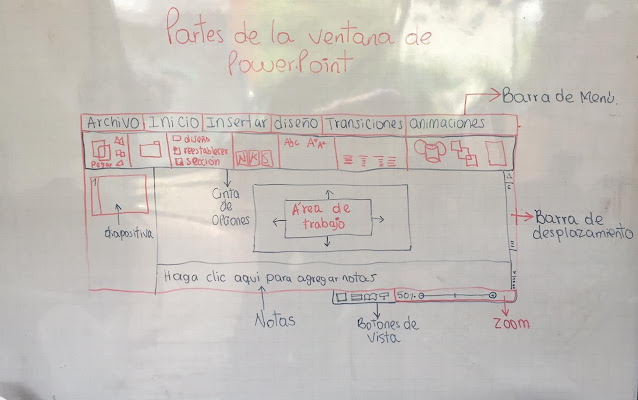 Partes de la ventana de
PowerPoint
Barra de Menú.
Archivo Inicio Insertar diseño Transiciones animaciones
Pegar
diseño
reestablecer
sección
N K S
ABC A A
1
diapositiva
Cinta
de
opciones
Área de
trabajo
Barra de
desplazamiento
Haga clic aqui para agregar notas
50%
Notas
Botones de
vista
Zoom